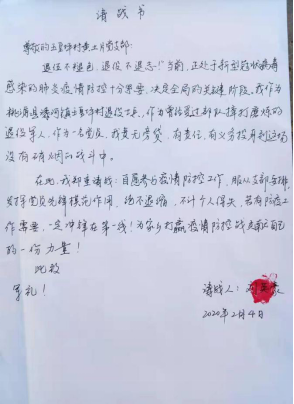 请战书
尊敬的土豆坪村黄土片党支部:
退伍不褪色,退役不退志!当前,正处于新型冠状病毒
感染的肺炎疫情防控十分严要、决定全局的关键阶段。我作为
桃源县 镇土豆坪村退役士兵,作为曾经受过部队摔打磨炼的
退役军人,作为一名党员,我责无旁贷,有责任,有义务投身到这场
没有硝烟的战斗中。
在此,我郑重请战:自愿参与疫情防控工作,服从支部安排,
发挥党员先锋模范作用,绝不退缩,不计个人得失,若有防疫工
作需要,一定冲锋在第一线!为家乡打赢疫情防控战去献自己
的一份力量!
此致
军礼!
请战人:
2020年2月4日